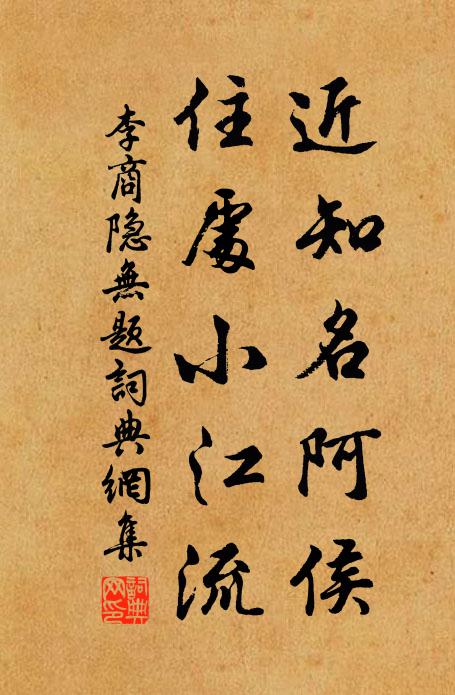 近知名阿侯
住處小江流
李商隐無題詞典網集
詞典网印